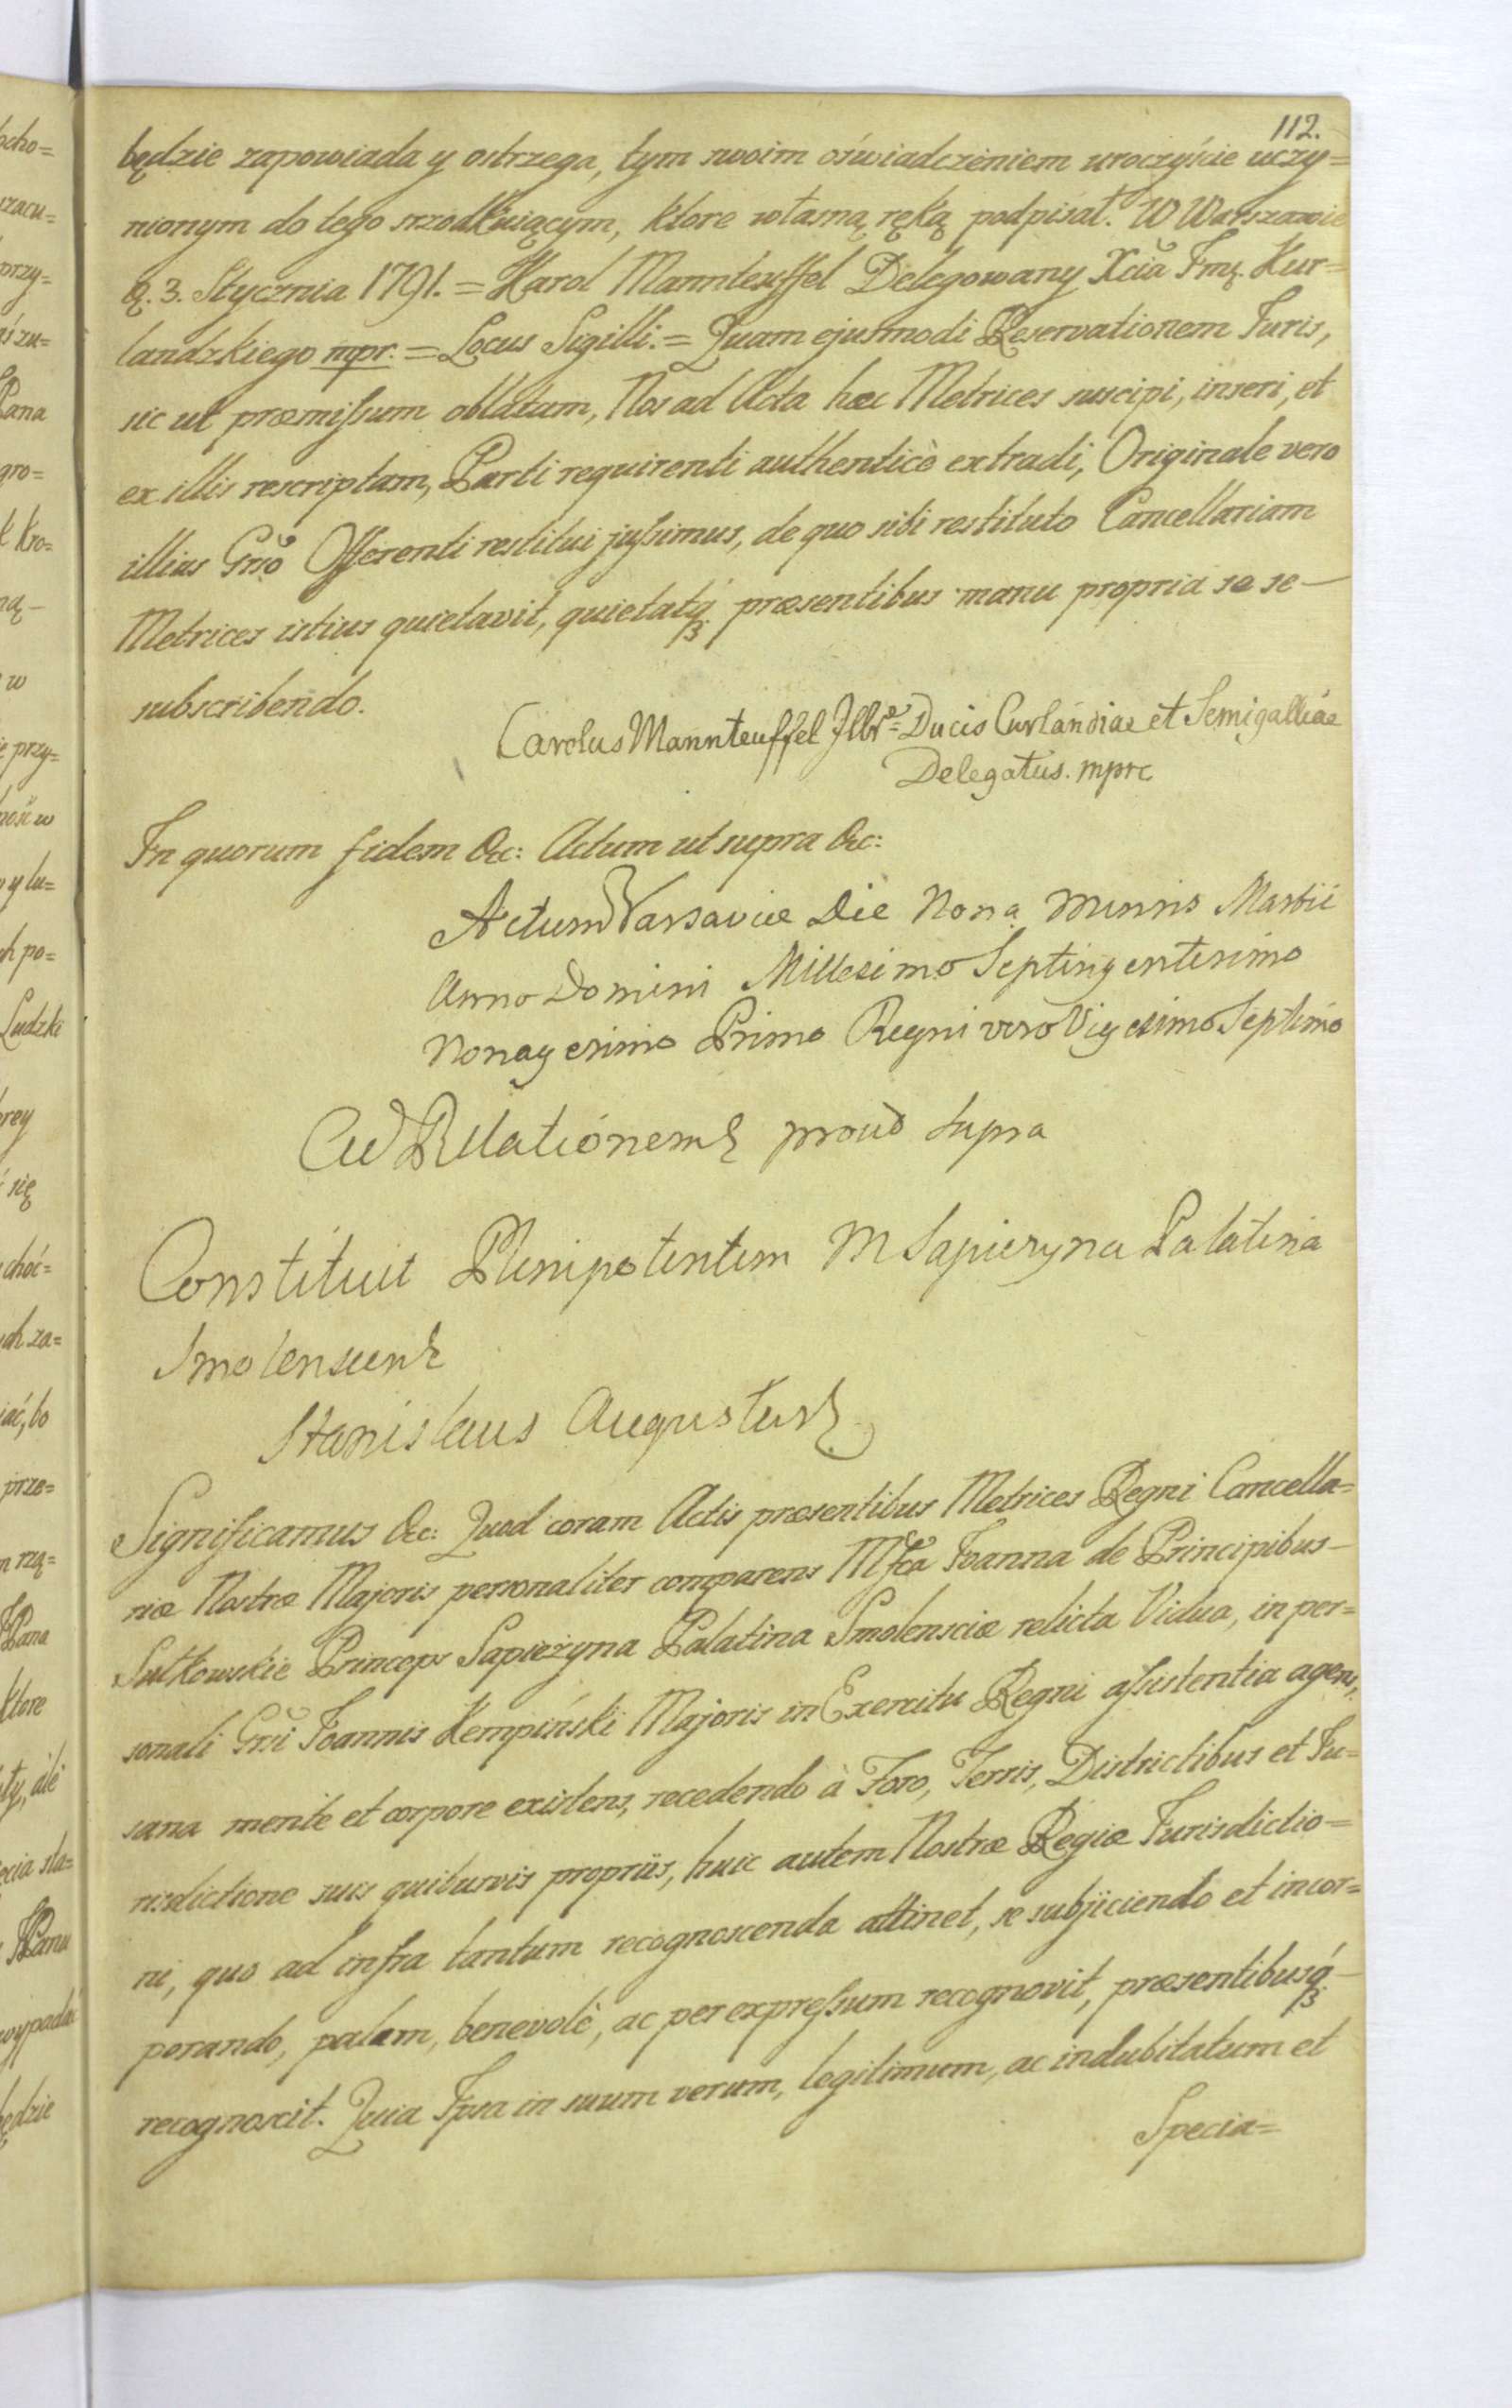 112.
będzie zapowiada y ostrzega, tym swoim oświadczeniem uroczyście uczy=
nionym do tego srzodkuiącym, ktore własną ręką podpisał. W Warszawie
d. 3. Stycznia 1791. = Karol Mannteuffel Delegowany Xcia Jmę. Kur=
landzkiego mpr. = Locus Sigilli. = Quam ejusmodi Reservationem Juris,
sic ut præmissum oblatam, Nos ad Acta hæc Metrices suscipi, inseri, et
ex illis rescriptam, Parti requirenti authenticè extradi, Originale vero
illius Grso Offerenti restitui jussimus, de quo sibi restituto Cancellariam
Metrices istius quietavit, quietatq; præsentibus manu propria se se—
subscribendo.
Carolus Mannteuffel Jllbr: Ducis Curlandiae et Semigalliae
Delegatus. mpr
In quorum fidem &c: Actum ut supra &c:
Actum Varsaviæ Die Nona Mensis Martii
Anno Domini Millesimo Septingentesimo
Nonagesimo Primo Regni vero Vigesimo Septimo
Ad Relationem prout supra
Constituit Plenipotentem M Sapiezyna Palatina
Smolenscen
Stanislaus Augustus
Significamus &c: Quod coram Actis præsentibus Metrices Regni Cancella=
riæ Nostræ Majoris personaliter comparens Mfca Joanna de Principibus—
Sułkowskie Princeps Sapieżyna Palatina Smolensciæ relicta Vidua, in per=
sonali Grsi Joannis Kempiński Majoris in Exercitu Regni assistentia agens,
sana mente et corpore existens, recedendo à Foro, Terris, Districtibus et Ju=
risdictione suis quibusvis propriis, huic autem Nostræ Regiæ Jurisdictio=
ni, quo ad infra tantum recognoscenda attinet, se subjiciendo et incor=
porando, palam, benevolè, ac per expressum recognovit, præsentibusq;—
recognoscit. Quia Ipsa in suum verum, legitimum, ac indubitatum et
Specia=